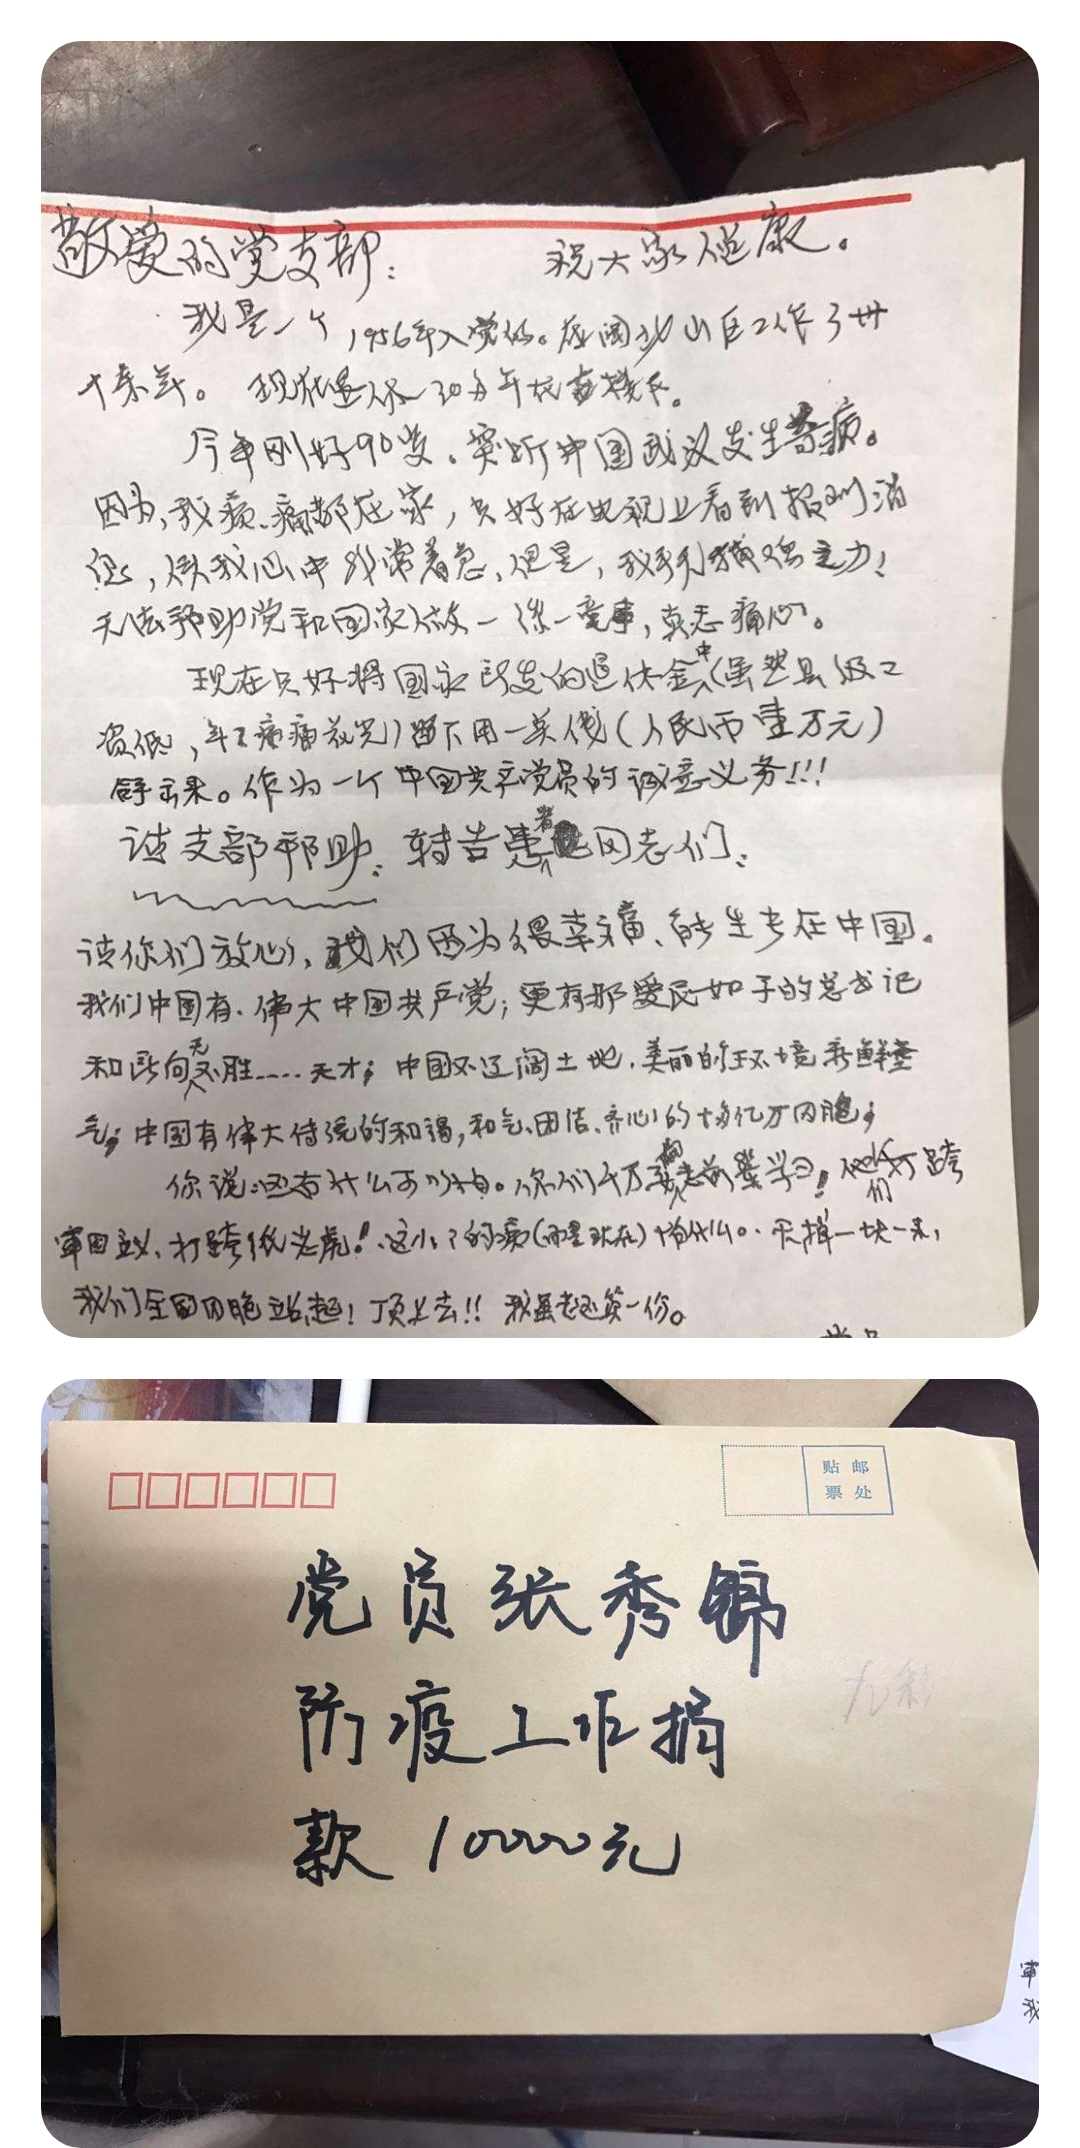 敬爱的党支部： 祝大家健康。
我是一个1956年入党的。在闽北山区工作了卅
十来年。现在退休30多年
今年刚好90岁。突听中国武汉发生病。
因为，我瘫痪都在家，只好在电视上看到报到消
息，使我心中非常着急，但是，我手无缚鸡之力！
无法帮助党和国家做一件一产事，真恶痛心。
现在只好将国家所发的退休金中（虽然县级工
资低，病痛花光）留下用一英钱（人民币壹万元）
拿出来。作为一个中国共产党员的诚意义务!!!
请支部帮助：转告患者同志们：
请你们放心，我们因为很幸福、能生长在中国。
我们中国有、伟大中国共产党；更有那爱民如子的总书记
和所向无不胜……天才；中国又辽阔土地，美丽的环境新鲜空
气；中国有伟大传统的和谐，和气、团结、齐心的十多亿万同胞；
你说：还有什么可怕。你们千万要向老前辈学习！他们打跨
军国主义、打跨纸老虎！这小小的病（而是现在）怕什么。灭掉一块一来，
我们全国同胞站起！顶上去!! 我虽老还算一份。
贴邮
票处
党员张秀锦
防疫工作捐
款10000元
军
我